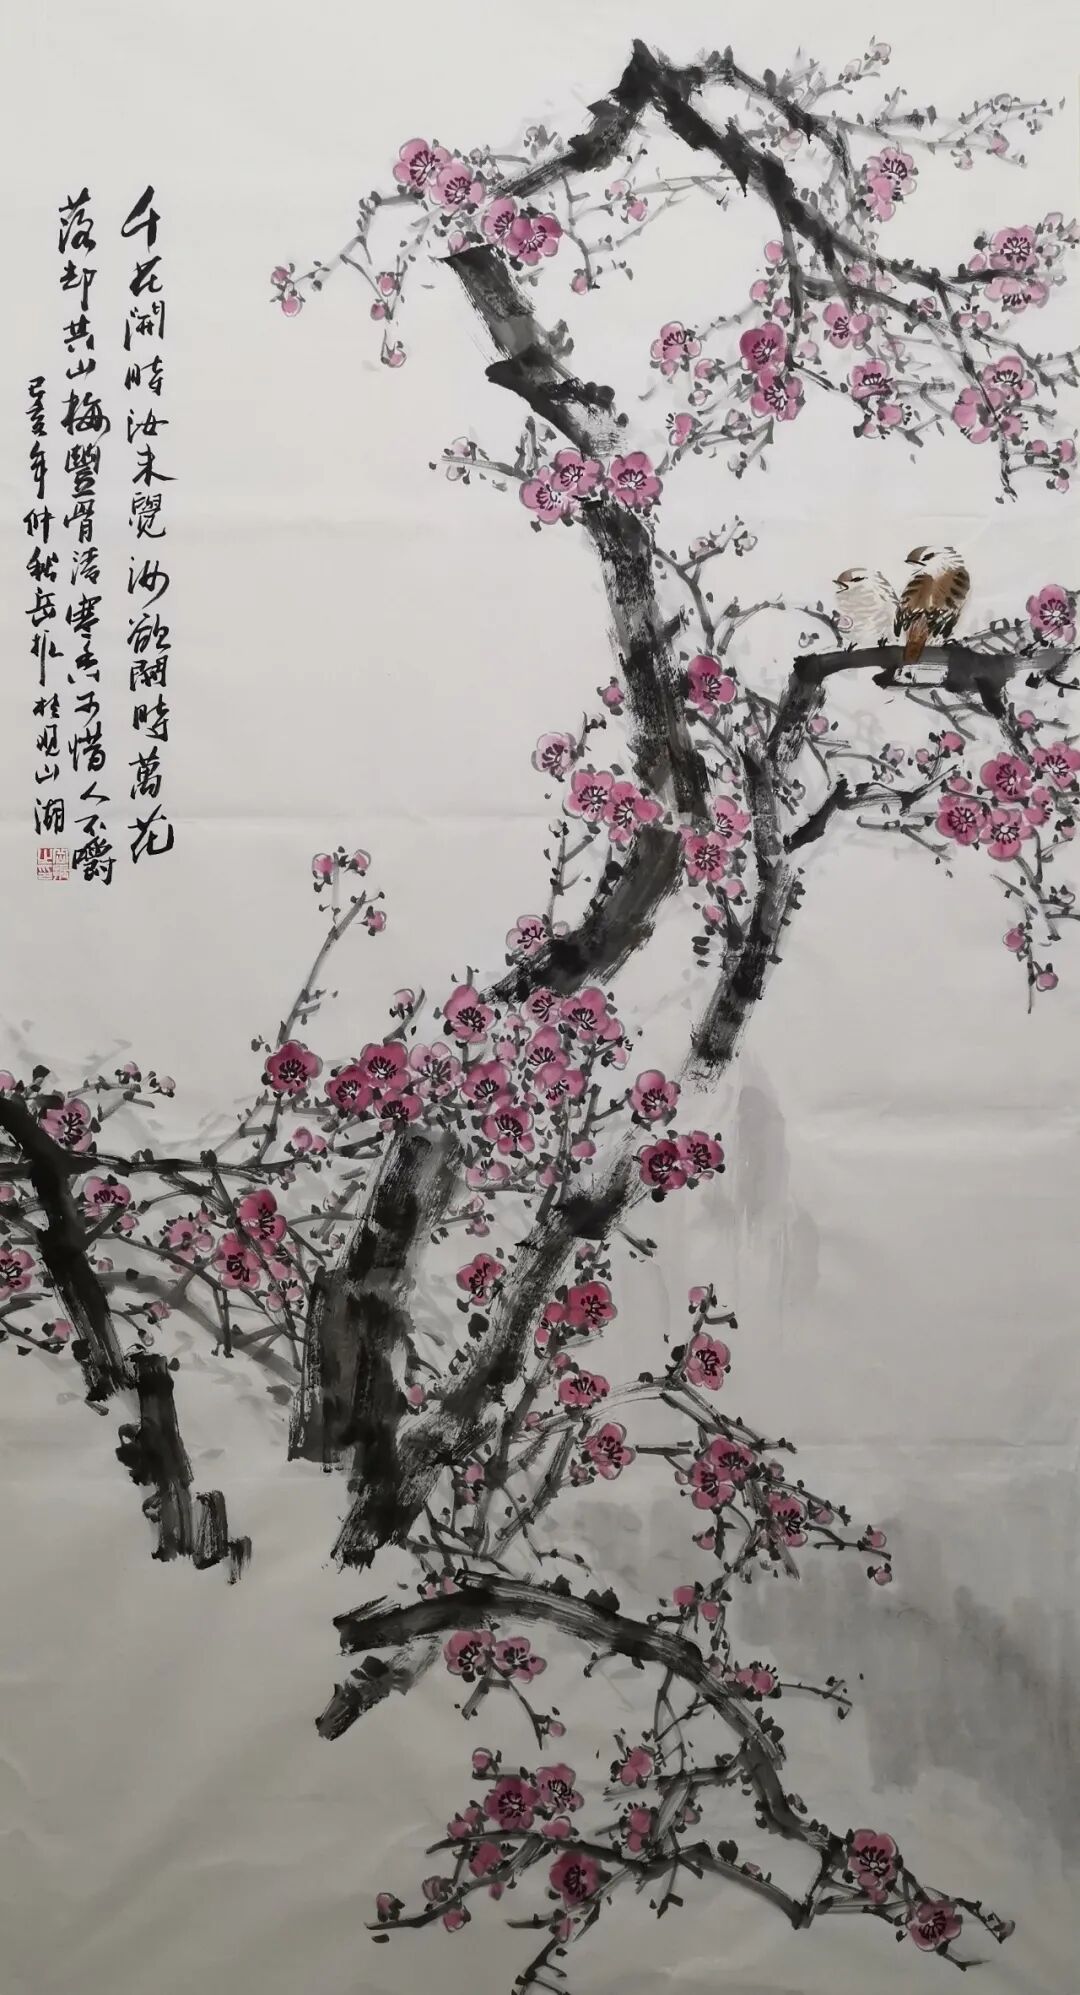 千花開時汝未覺汝欲開時萬花
落却其山梅豐骨清寒香不惜人不嚼
己亥年仲秋岳松桂明山湖